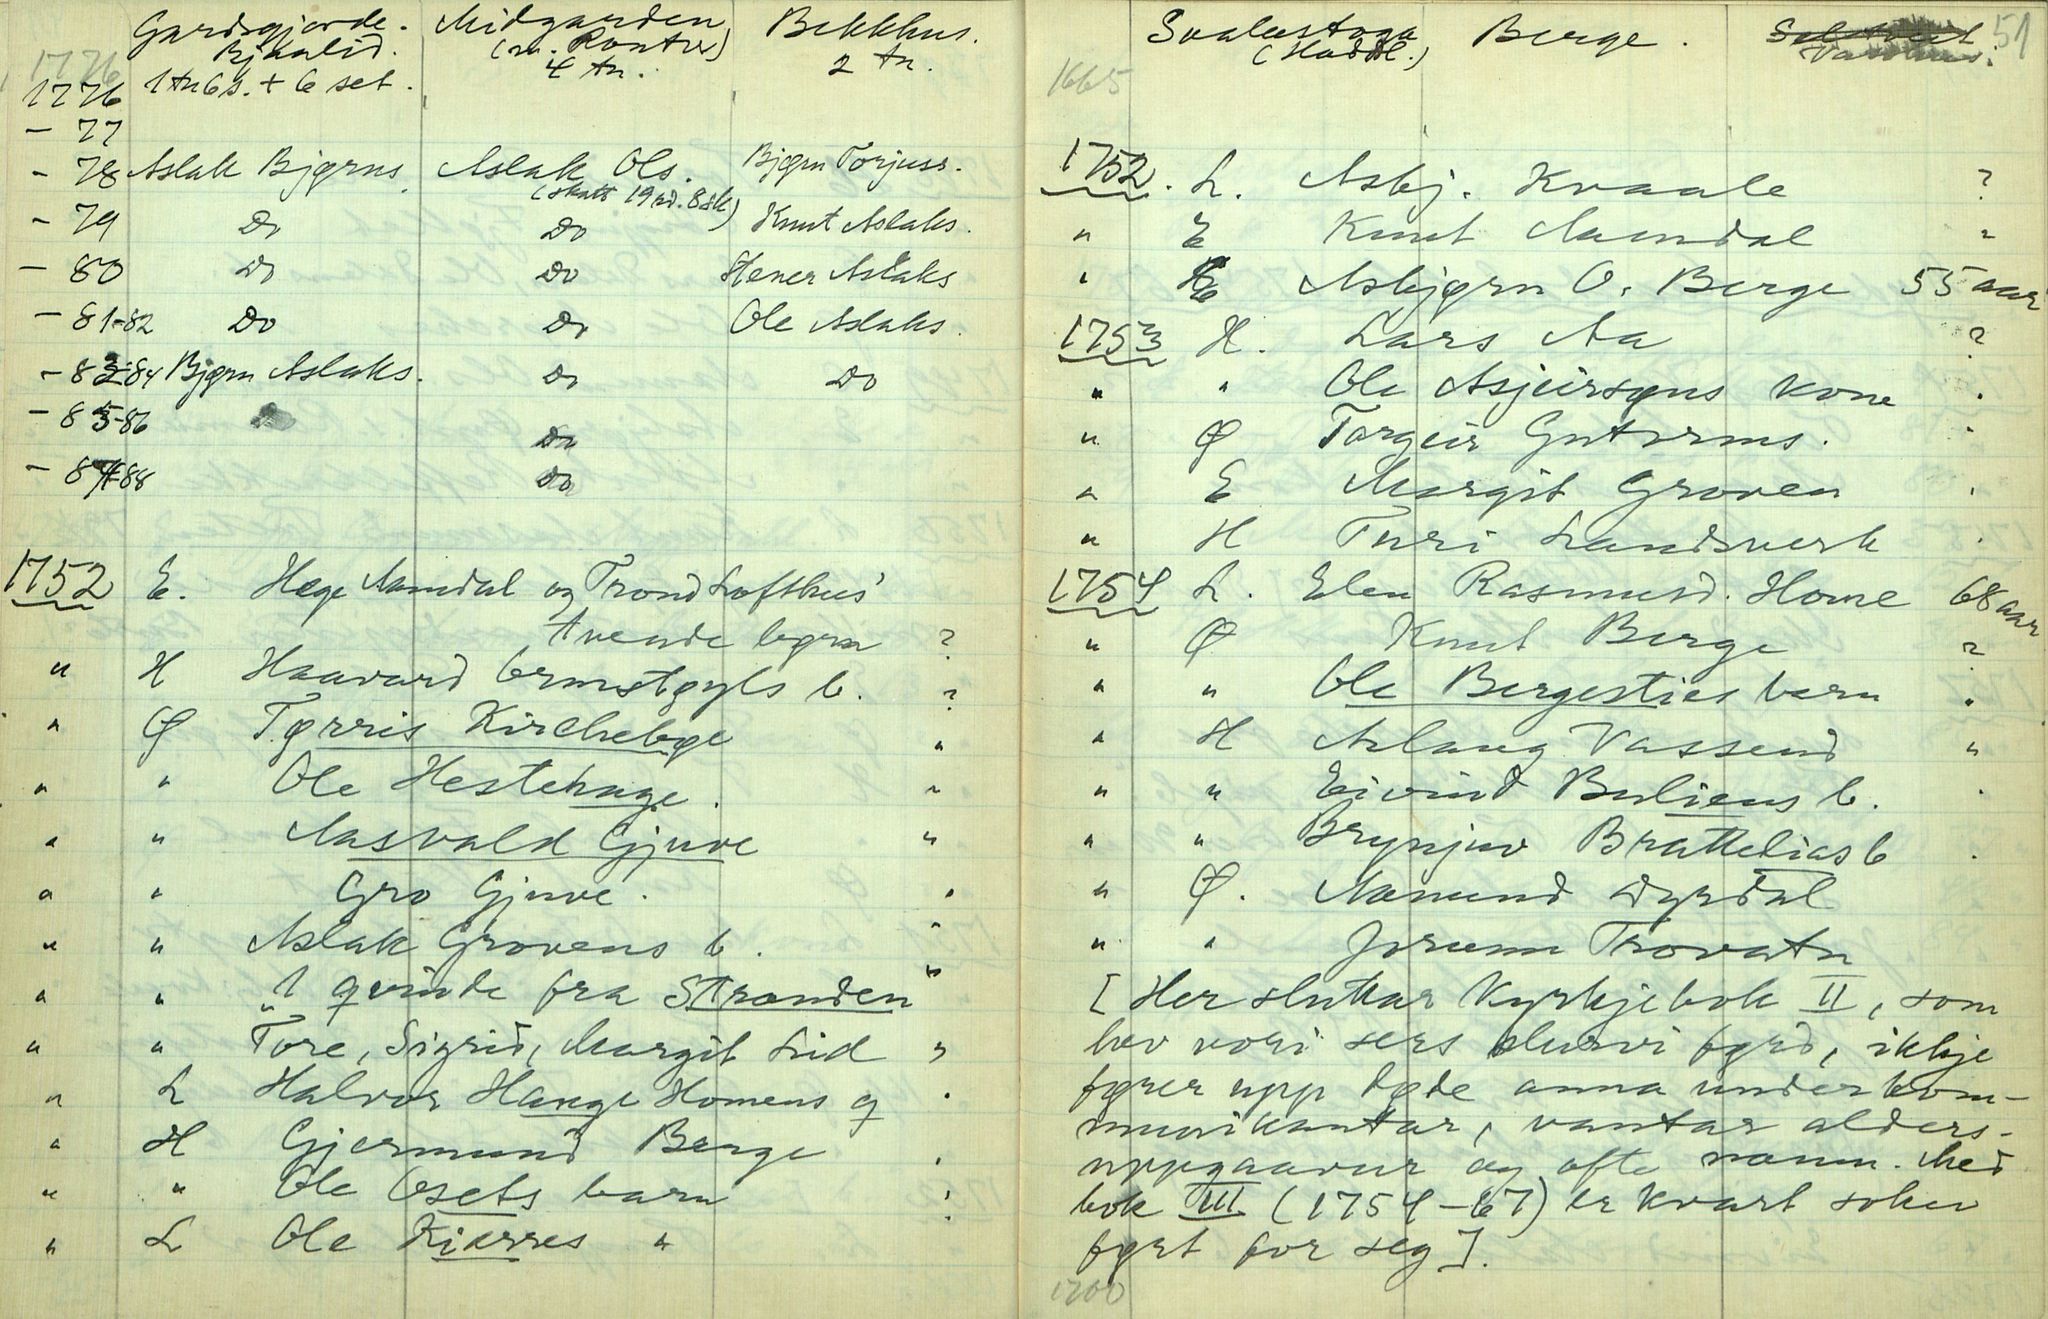 Gardsgjorde. Midgarden Bekkhus.
Bjkalid. (m. Rontve)
4 tn. 2 tn.
1776
1776 1 tn 6 s. + 6 set.
- 77
- 78 Aslak Bjørns. Aslak Ols. Bjørn Torjuss.
(skatt 19 rd. 8 sk)
- 79 Do Do Knut Aslaks.
- 80 Do Do Stener Aslaks
- 81-82 Do Do Ole Aslaks.
- 83-84 Bjørn Aslaks. Do Do
- 85-86 Do
- 87-88 Do
1752 E. Hæge Aamdal og Trond Lofthus'
tvende børn ?
" H Haavard Ormstøyls b. ?
" Ø Tørris Kirchebøe "
" " Ole Hestehage. "
" " Aasvald Gjuve "
" " Gro Gjuve. "
" " Aslak Grovens b. "
" " 1 qvinde fra Stranden "
" " Tore, Sigrid, Margit Lid "
" L Halvor Hauge Homens q "
" H Gjermund Berge "
" " Ole Osets barn "
" L Ole Kiærres "
51
Svalastoga Berge.
(Hadd.)
1665
1752. L. Asbj. Kvaale ?
" E Knut Aamdal "
" E Asbjørn O. Berge 55 aar
1753 H. Lars Aa ?
" " Ole Asjeirsøns kone "
" Ø Targeir Guttorms. "
" E Margit Groven "
" H Turi Landsverk "
1754 L. Elen Rasmusd. Home 68 aar
" Ø Knut Berge ?
" " Ole Bergesties barn "
" H Aslaug Vassend "
" " Eivind Buliens b. "
" " Brynjuv Brattelias b "
" Ø. Aamund Dyrdal
" " Jorunn Trovatn
[Her sluttar Kyrkjebok II, som
hev vori sers slurvi førd, ikkje
fører upp døde anna under kom-
munikantar, vantar alders-
uppgaavur og ofte namn. Med
bok III (1754-67) er kvart sokn
ført for seg].
1700